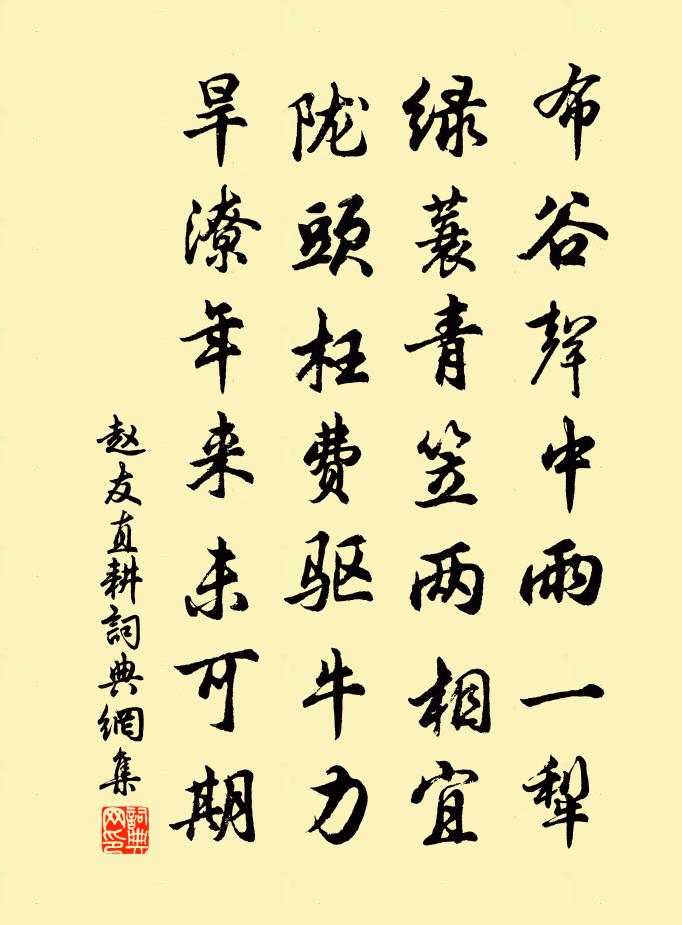 布谷聲中雨一犁
绿蓑青笠两相宜
陇頭枉费驱牛力
旱潦年来未可期
赵友直耕詞典網集
詞典网印